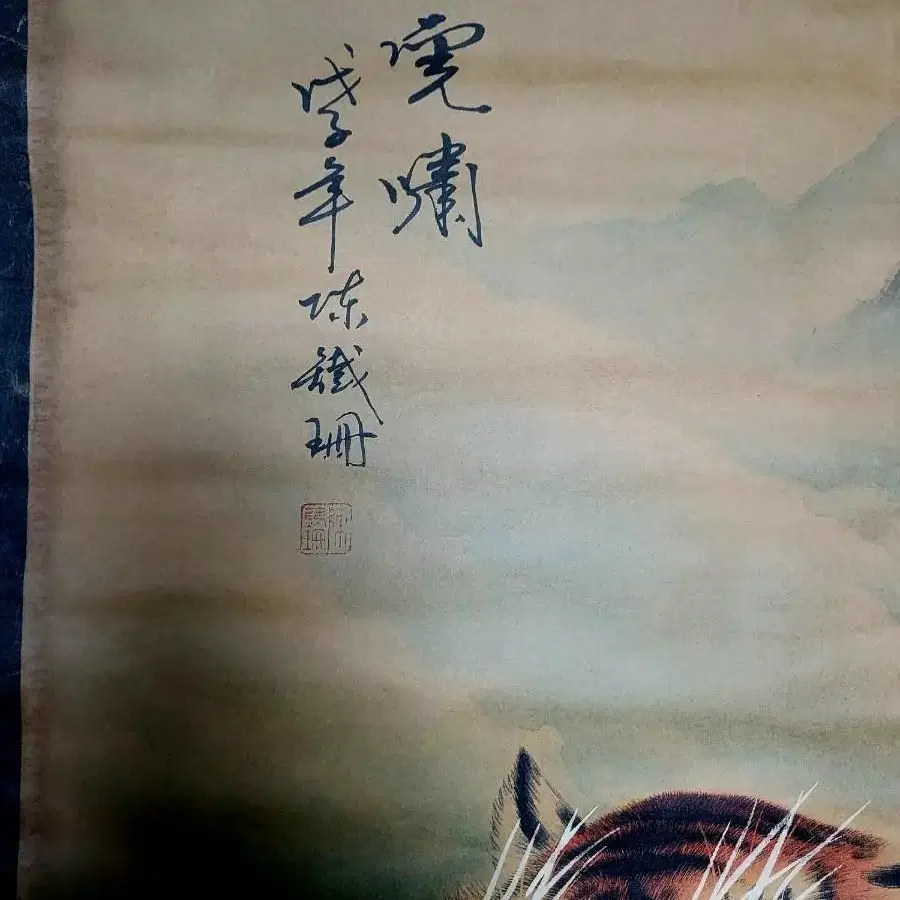 虎嘯
戊子年 陈鐵珊